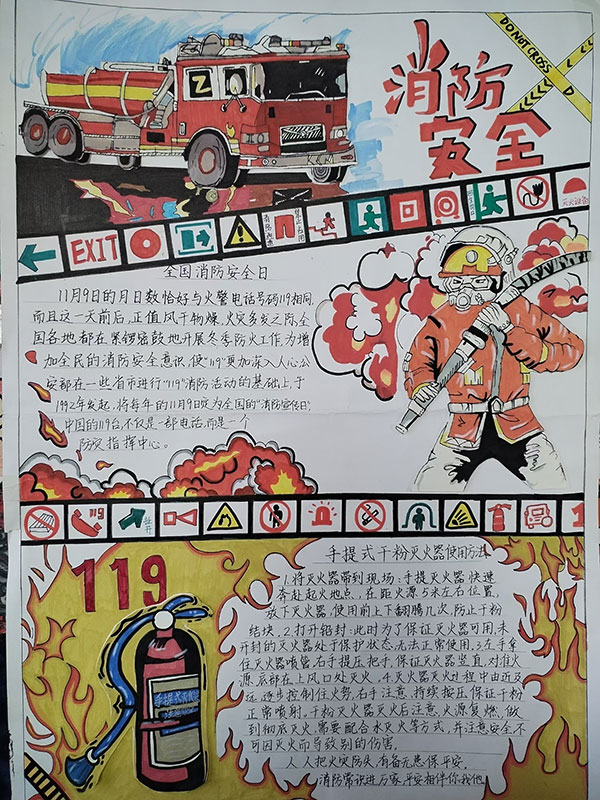 DO NOT CROSS
D
消防
安全
Z
EXIT
灭火设备
全国消防安全日
11月9日的月日数恰好与火警电话号码119相同,
而且这一天前后,正值风干物燥、火灾多发之际,全
国各地都在紧锣密鼓地开展冬季防火工作,为增
加全民的消防安全意识,使"119"更加深入人心,公
安部在一些省市进行"119"消防活动的基础上,于
1992年发起,将每年的11月9日定为全国的"消防宣传日",
中国的119台,不仅是一部电话,而是一个
防灾指挥中心。
119
119
手提式干粉灭火器使用方法
1.将灭火器带到现场:手提灭火器快速
奔赴起火地点,在距火源5米左右位置,
放下灭火器,使用前上下翻腾几次,防止干粉
结块.2.打开铅封:此时为了保证灭火器可用,未
开封的灭火器处于保护状态,无法正常使用.3.左手拿
住灭火器喷管,右手提压把手,保证灭火器竖直,对准火
源底部在上风口处灭火.4.灭火器灭火过程中由近及
远,逐步控制住火势,右手注意,持续按压,保证干粉
正常喷射。干粉灭火器灭火后注意,火源复燃,做
到彻底灭火,需要配合水灭火等方式,并注意安全,不
可因灭火而导致别的伤害。
人人把火灾防失,有备无患保平安。
消防常识进万家,平安相伴你我他
手提式灭火器